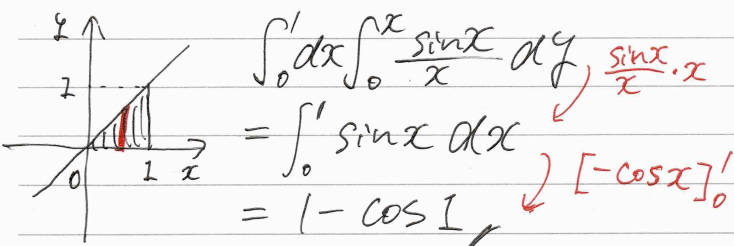 y
1
0 1 x
∫₀¹dx∫₀ˣ sinx/x dy
sinx/x · x
= ∫₀¹ sinx dx
[-cosx]₀¹
= 1 - cos1